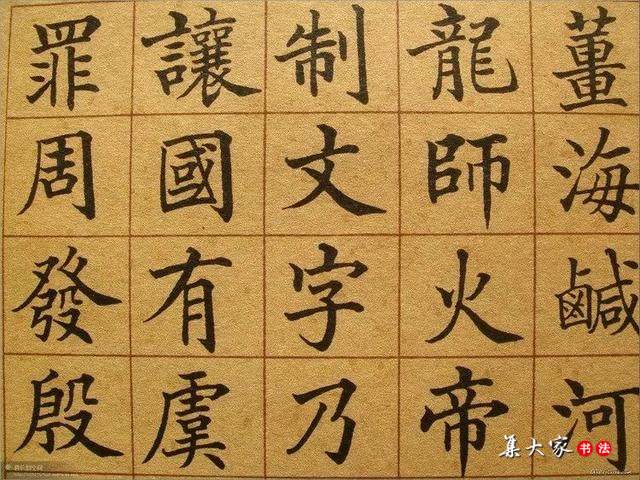 薑海鹹河
龍師火帝
制文字乃
讓國有虞
罪周發殷
集大家书法